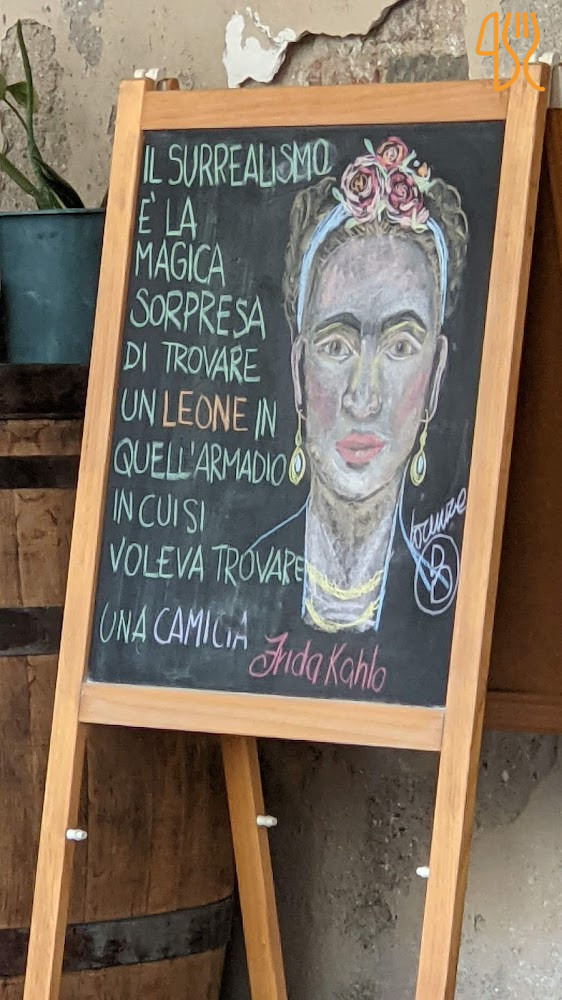 IL SURREALISMO
E' LA
MAGICA
SORPRESA
DI TROVARE
UN LEONE IN
QUELL'ARMADIO
IN CUI SI
VOLEVA TROVARE
UNA CAMICIA
Frida Kahlo